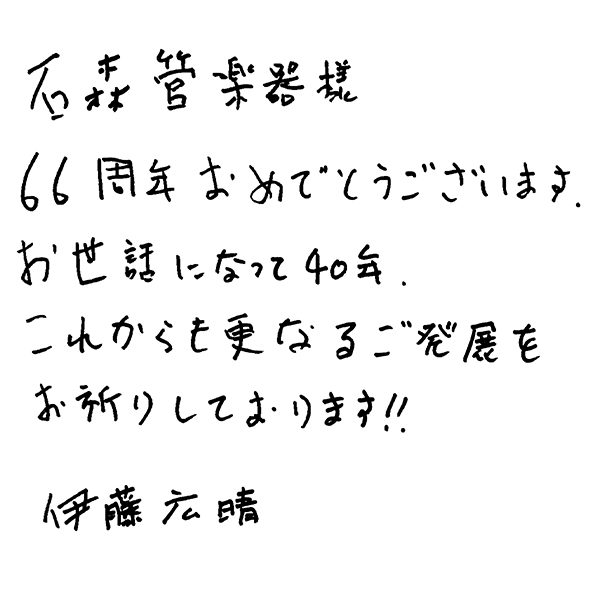 石森管楽器様
66周年おめでとうございます.
お世話になって40年.
これからも更なるご発展を
お祈りしております!!
伊藤広晴